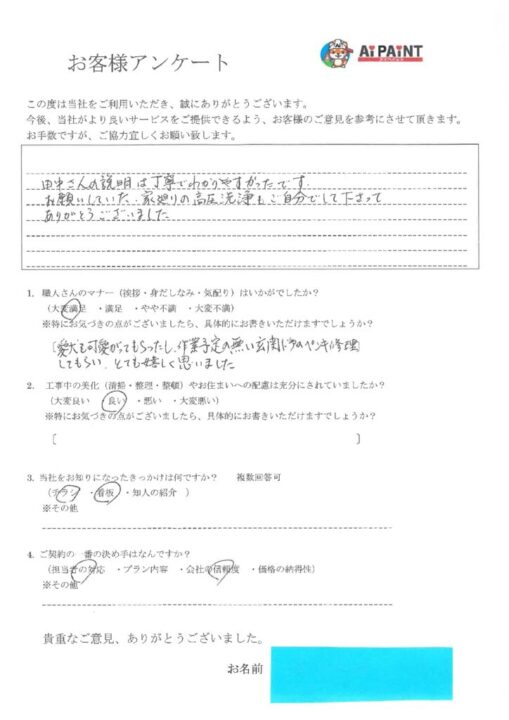 お客様アンケート
AI PAINT
この度は当社をご利用いただき、誠にありがとうございます。
今後、当社がより良いサービスをご提供できるよう、お客様のご意見を参考にさせて頂きます。
お手数ですが、ご協力宜しくお願い致します。
田中さんの説明は丁寧でわかりやすかったです。
お願いしていた、家廻りの高圧洗浄もご自分でして下さって
ありがとうございました
1. 職人さんのマナー（挨拶・身だしなみ・気配り）はいかがでしたか？
（大変満足 ・満足 ・やや不満 ・大変不満）
※特にお気づきの点がございましたら、具体的にお書きいただけますでしょうか？
〔愛犬も可愛がってもらったし、作業予定の無い玄関ドアのペンキ修理
してもらい、とても嬉しく思いました
2. 工事中の美化（清掃・整理・整頓）やお住まいへの配慮は充分にされていましたか？
（大変良い ・良い ・悪い ・大変悪い）
※特にお気づきの点がございましたら、具体的にお書きいただけますでしょうか？
〔 〕
3. 当社をお知りになったきっかけは何ですか？ 複数回答可
（チラシ ・看板 ・知人の紹介 ）
※その他
4. ご契約の一番の決め手はなんですか？
（担当者の対応 ・プラン内容 ・会社の信頼度 ・価格の納得性）
※その他
貴重なご意見、ありがとうございました。
お名前